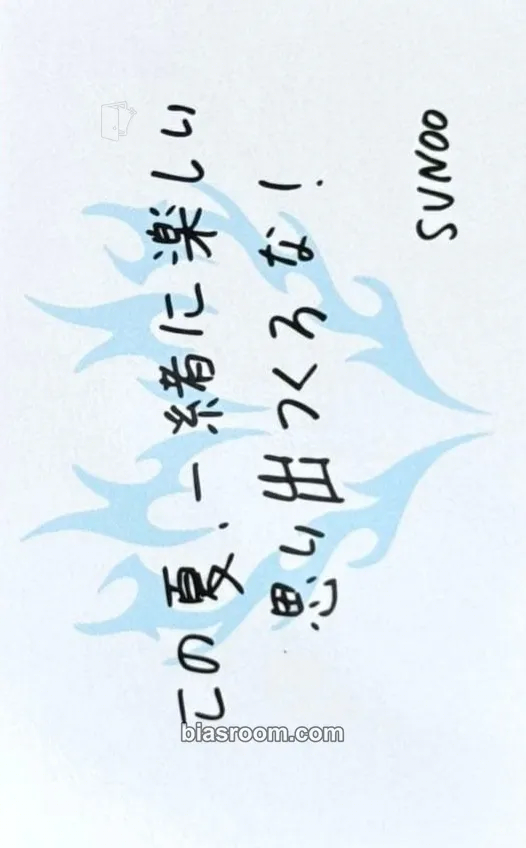 この夏.一緒に楽しい
思い出つくろな!
SUNOO
biasroom.com